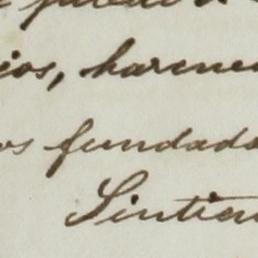 ios, harene
os fundado
Sintien